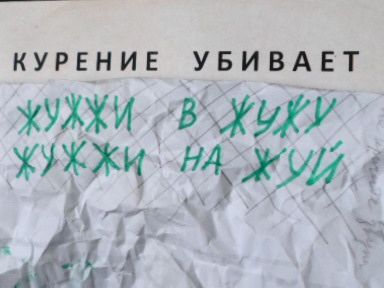 КУРЕНИЕ УБИВАЕТ
ЖУЖЖИ В ЖУЖУ
ЖУЖЖИ НА ЖУЙ